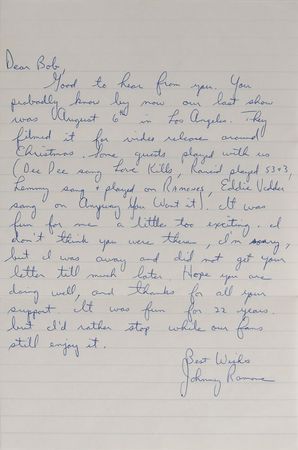 Dear Bob,
Good to hear from you. You
probably know by now our last show
was August 6th in Los Angeles. They
filmed it for video release around
Christmas. Some guests played with us
(Dee Dee sang Love Kills, Rancid played 53+3,
Lemmy sang + played on Ramones, Eddie Vedder
sang on Anyway You Want it). It was
fun for me a little too exciting. I
don't think you were there, I'm sorry,
but I was away and did not get your
letter till much later. Hope you are
doing well, and thanks for all your
support. It was fun for 22 years.
but I'd rather stop while our fans
still enjoy it.
Best Wishes
Johnny Ramone